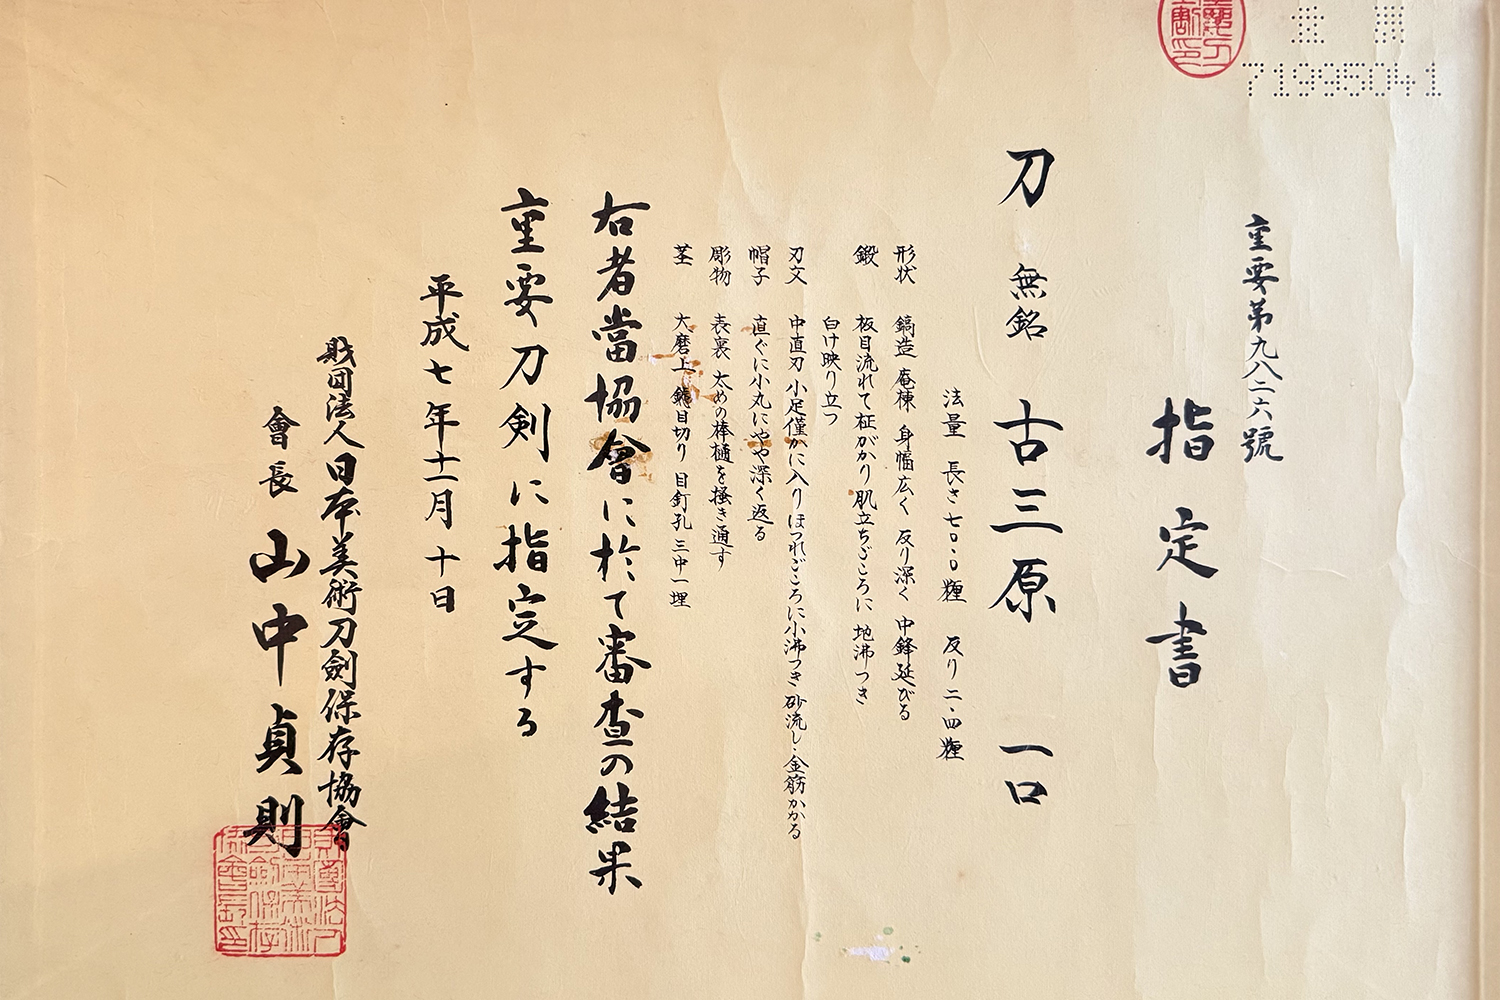 71995041
重要第九八二六號
指定書
刀 無銘 古三原 一口
法量 長さ七〇・〇糎 反り二・四糎
形状 鎬造 庵棟 身幅広く 反り深く 中鋒延びる
鍛 板目流れて柾がかり 肌立ちごころに 地沸つき
白け映り立つ
刃文 中直刃 小足僅かに入り ほつれごころに小沸つき 砂流し・金筋かかる
帽子 直ぐに小丸にやや深く返る
彫物 表裏 太めの棒樋を掻き通す
茎 大磨上 鑢目切り 目釘孔 三中一埋
右者當協會に於て審査の結果
重要刀剣に指定する
平成七年十一月十日
財団法人日本美術刀劍保存協會
會長 山中貞則